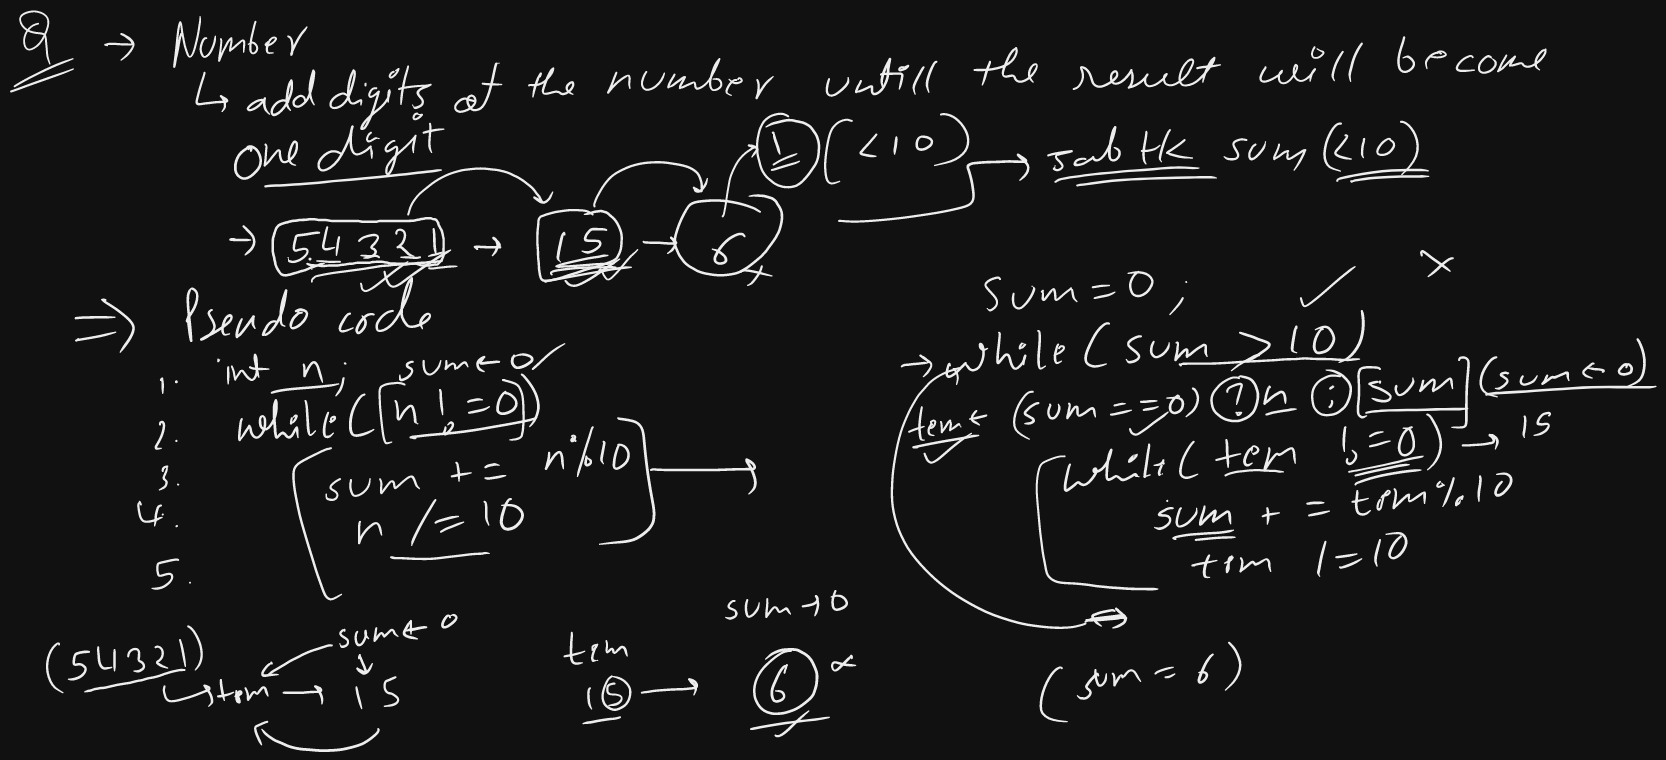 Q → Number
↳ add digits of the number untill the result will become
one digit
1 (<10) → jab tk sum (<10)
→ 54321 → 15 → 6
⇒ Pseudo code
1. int n; sum ← 0
2. while (n != 0)
3. sum += n%10
4. n /= 10
5.
sum = 0;
→ while (sum > 10)
tem ← (sum == 0) ? n : [sum] (sum ← 0)
while (tem != 0) → 15
sum += tem%10
tem /= 10
(54321) sum ← 0
↳ tem → 15
tem sum → 0
15 → 6
(sum = 6)